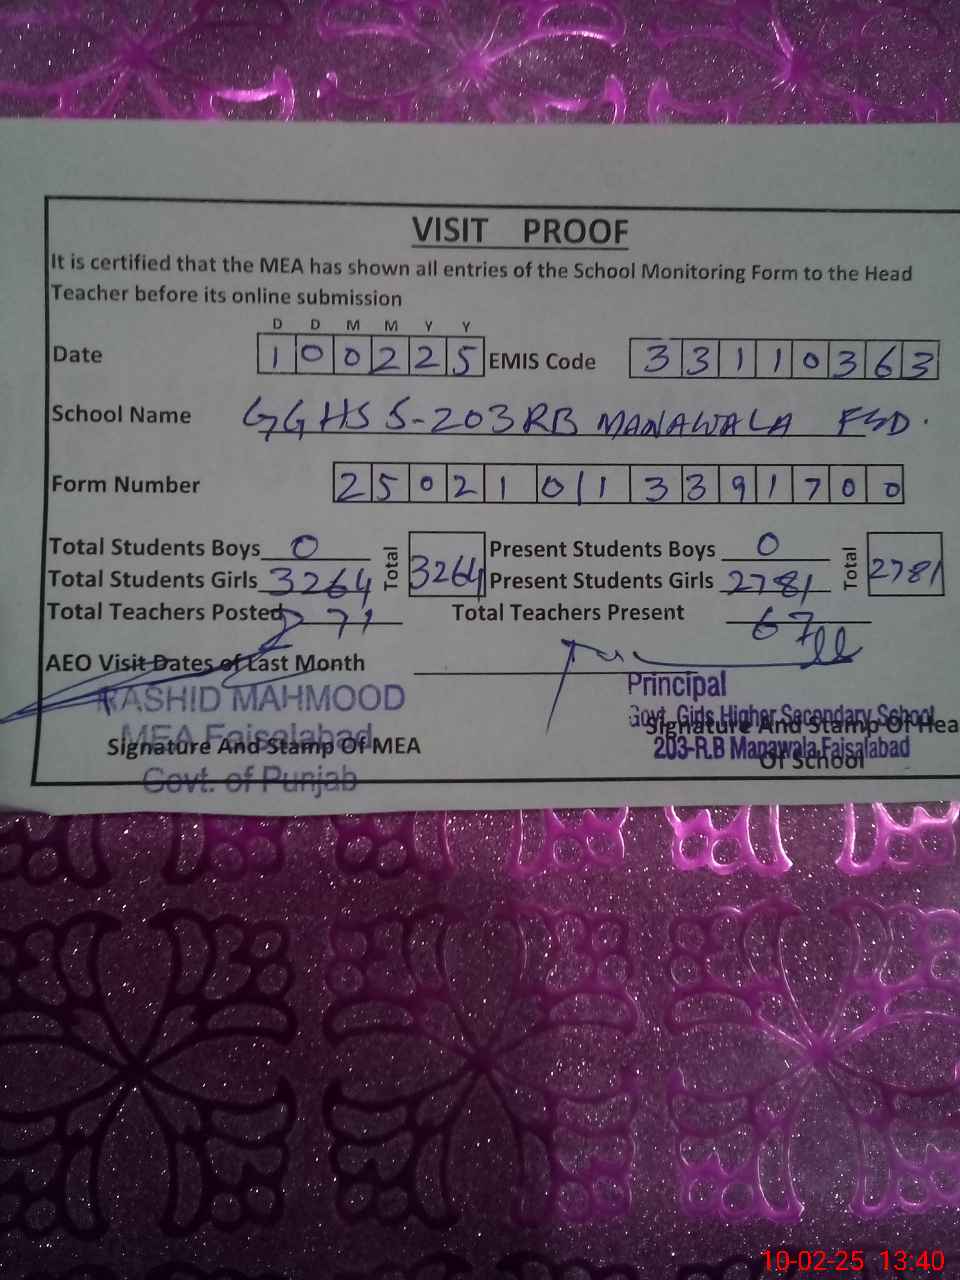 VISIT PROOF
It is certified that the MEA has shown all entries of the School Monitoring Form to the Head
Teacher before its online submission
D D M M Y Y
Date 1 0 0 2 2 5 EMIS Code 3 3 1 1 0 3 6 3
School Name GGHSS-203RB MANAWALA FSD.
Form Number 2 5 0 2 1 0 1 1 3 3 9 1 7 0 0
Total Students Boys 0 Total 3264 Present Students Boys 0 Total 2781
Total Students Girls 3264 Present Students Girls 2781
Total Teachers Posted 71 Total Teachers Present 67
AEO Visit Dates of Last Month
RASHID MAHMOOD
MEA Faisalabad
Govt. of Punjab
Signature And Stamp Of MEA
Principal
Govt. Girls Higher Secondary School
203-R.B Manawala Faisalabad
Signature And Stamp Of Hea
Of School
10-02-25 13:40